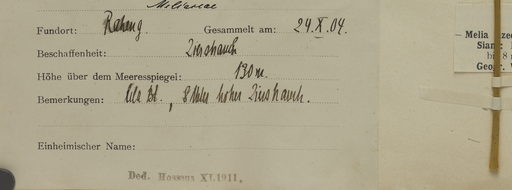 Meliaceae
Fundort: Raheng. Gesammelt am: 24.X.04.
Beschaffenheit: Zierstrauch
Höhe über dem Meeresspiegel: 130 m.
Bemerkungen: lila Bl., hoher Zierstrauch.
Einheimischer Name:
Ded. Hosseus XI.1911.
— Melia
Siam:
bis 8
Geogr.